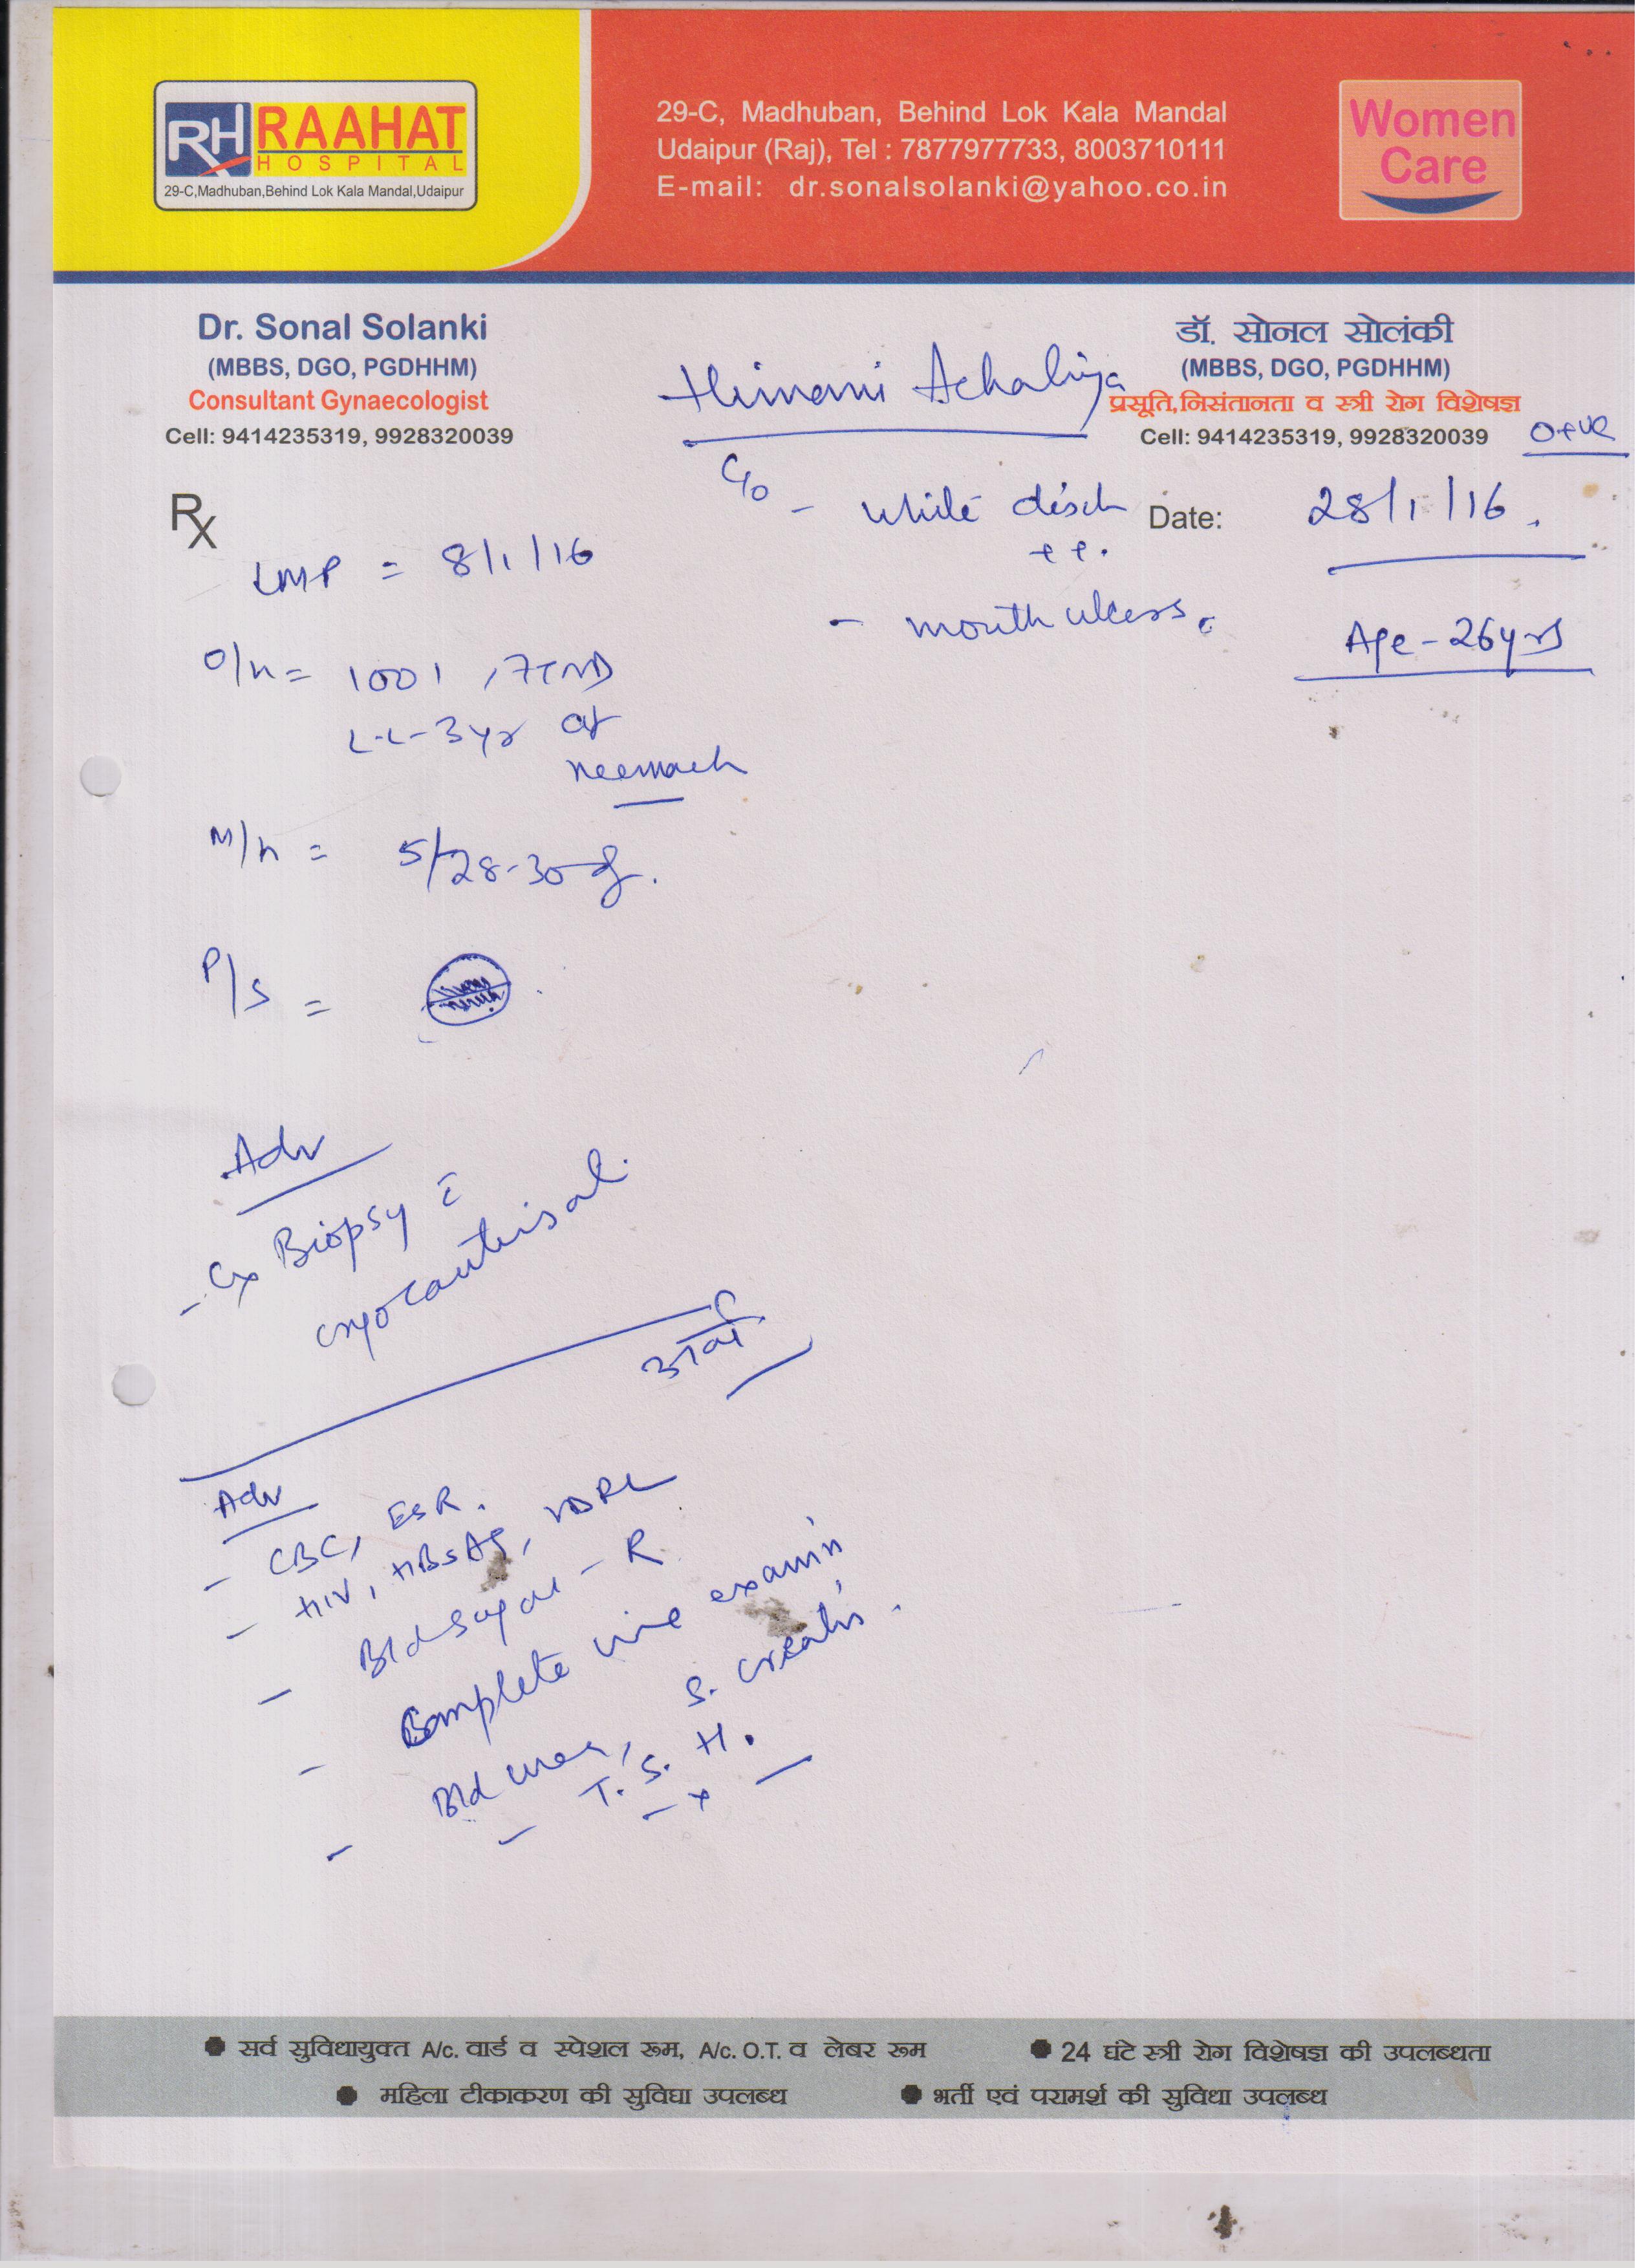 RH RAAHAT
HOSPITAL
29-C,Madhuban,Behind Lok Kala Mandal,Udaipur
29-C, Madhuban, Behind Lok Kala Mandal
Udaipur (Raj), Tel : 7877977733, 8003710111
E-mail: dr.sonalsolanki@yahoo.co.in
Women
Care
Dr. Sonal Solanki
(MBBS, DGO, PGDHHM)
Consultant Gynaecologist
Cell: 9414235319, 9928320039
Himami Achaliya
डॉ. सोनल सोलंकी
(MBBS, DGO, PGDHHM)
प्रसूति,निसंतानता व स्त्री रोग विशेषज्ञ
Cell: 9414235319, 9928320039
O+ve
Rx
C/o - white disch
++.
- mouth ulcers.
Date: 28/1/16.
Age - 26yrs
LMP = 8/1/16
O/H = 1001, FTND
L.C-3yr at
neemach
M/H = 5/28-30 d.
P/S =
Adv
- Cx Biopsy c̄
cryocauterisat.
Adv
- CBC, ESR.
- HIV, HBsAg, VDRL
- Bld sugar - R
- Complete urine examin
- Bld urea, S. creatin.
- T.S.H.
- x -
सर्व सुविधायुक्त A/c. वार्ड व स्पेशल रूम, A/c. O.T. व लेबर रूम
24 घंटे स्त्री रोग विशेषज्ञ की उपलब्धता
महिला टीकाकरण की सुविधा उपलब्ध
भर्ती एवं परामर्श की सुविधा उपलब्ध